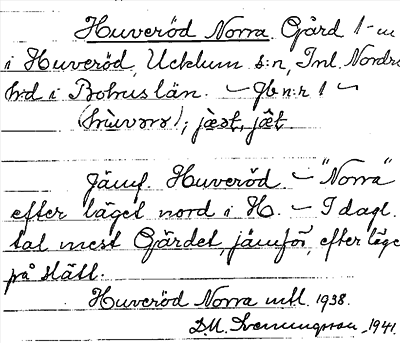 Huveröd Norra. Gård 1-m
i Huveröd, Ucklum s:n, Inl. Nordre
hrd i Bohuslän. — Jb n:r 1 —
jämf. Huveröd. — "Norra"
efter läget nord i H. — I dagl.
tal mest Gärdet, jämför, efter läge
på slätt.
Huveröd Norra mtl. 1938.
D.M. Svenningsson, 1941.